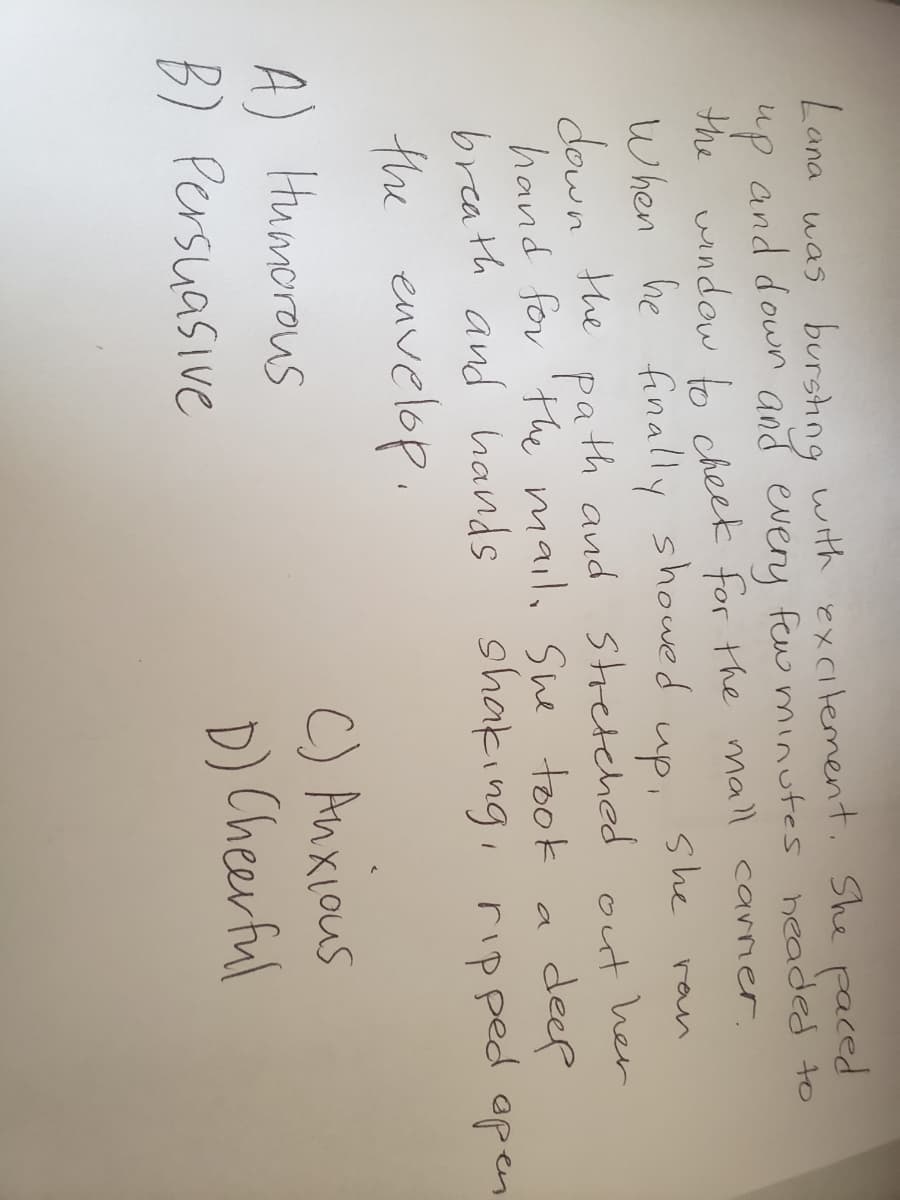 Lana was bursting with excitement. She paced
up and down and every few minutes headed to
the window to check for the mail carrier.
When he finally showed up, she ran
down the path and stretched out her
hand for the mail. She took a deep
breath and hands shaking, ripped open
the envelop.
A) Humorous
B) Persuasive
C) Anxious
D) Cheerful